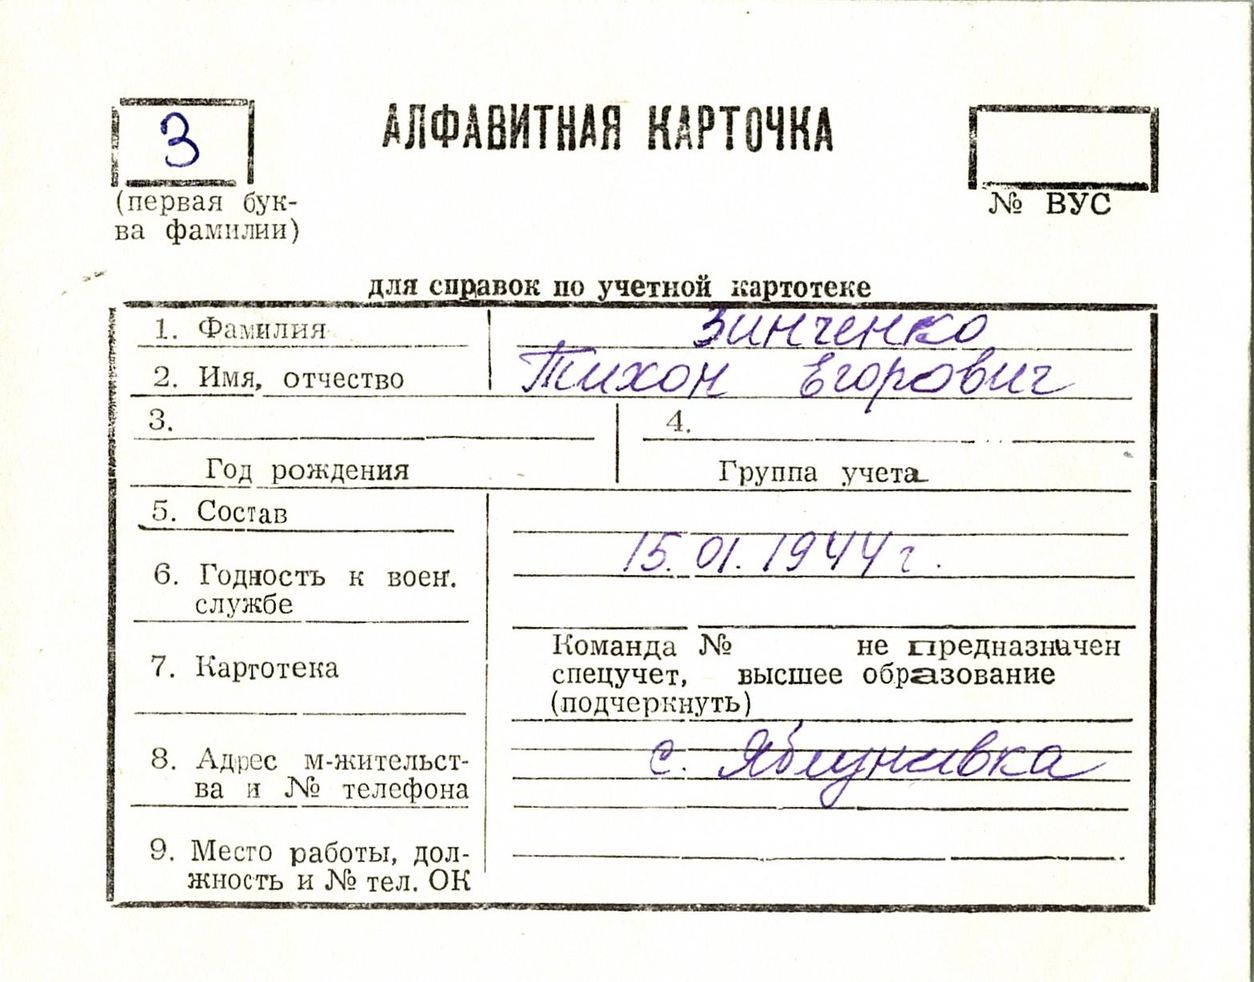 З
АЛФАВИТНАЯ КАРТОЧКА
(первая бук-
ва фамилии)
№ ВУС
для справок по учетной картотеке
1. Фамилия Зинченко
2. Имя, отчество Тихон Егорович
3. 4.
Год рождения Группа учета
5. Состав
15.01.1944 г.
6. Годность к воен.
службе
7. Картотека
Команда № не предназначен
спецучет, высшее образование
(подчеркнуть)
8. Адрес м-жительст-
ва и № телефона
с. Яблунивка
9. Место работы, дол-
жность и № тел. ОК